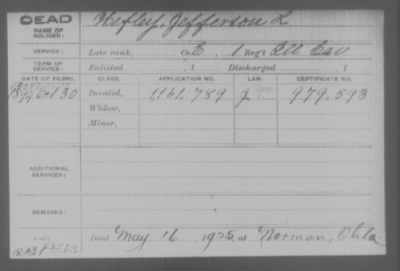 DEAD
NAME OF SOLDIER:
Jefferson L
SERVICE: Late rank, Co. E, 1 Reg't Ill Cav
TERM OF SERVICE: Enlisted , 1 Discharged , 1
DATE OF FILING. CLASS. APPLICATION NO. LAW. CERTIFICATE NO.
Invalid, 1,161,789 979,593
Widow,
Minor,
ADDITIONAL SERVICES:
REMARKS:
Died May 16, 1925, at Norman, Okla